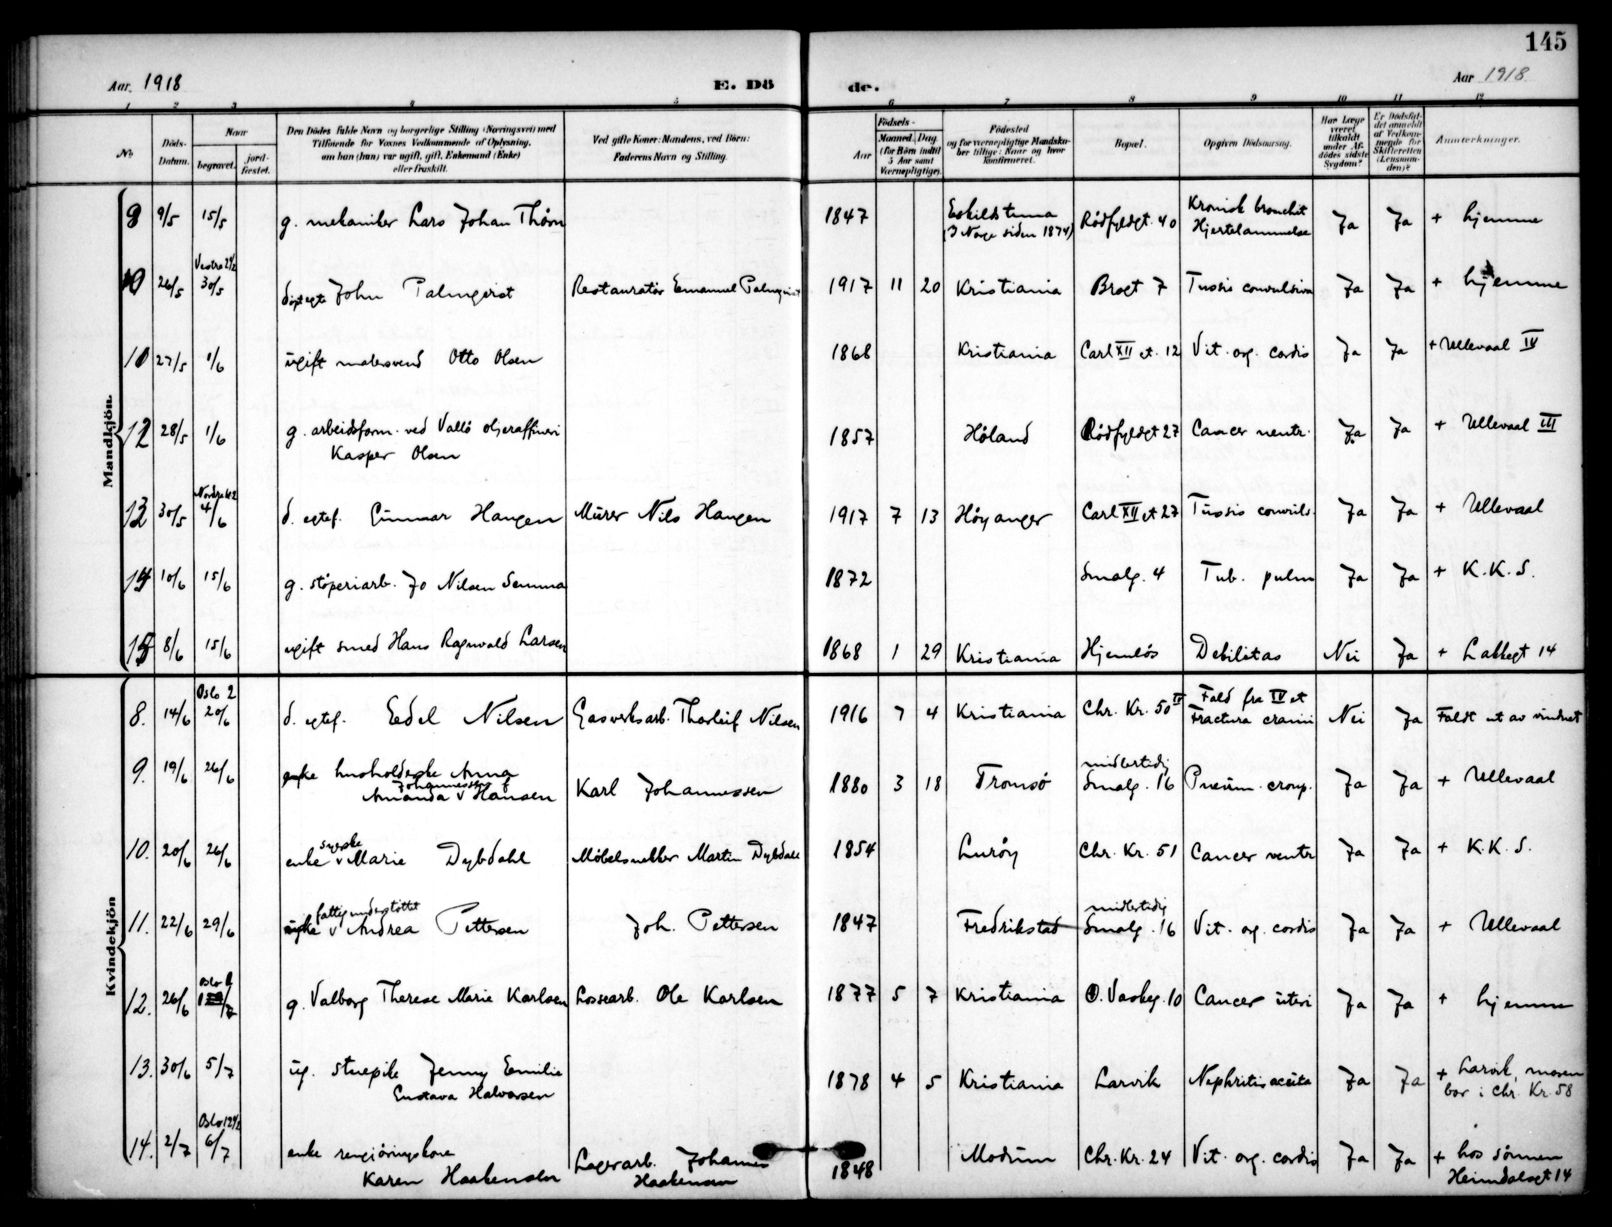 145
Aar 1918 E. Dö de. Aar 1918
1 2 3 4 5 6 7 8 9 10 11 12
No Döds-Datum. Naar begravet. jord-fæstet. Den Dödes fulde Navn og borgerlige Stilling (Næringsvei) med Tilföiende for Voxnes Vedkommende af Oplysning, om han (hun) var ugift, gift, Enkemand (Enke) eller fraskilt. Ved gifte Koner: Mandens, ved Börn: Faderens Navn og Stilling. Födsels- Aar Maaned. Dag (for Börn indtil 5 Aar samt Værnepligtige). Födested og for værnepligtige Mandskaber tillige: Naar og hvor konfirmeret. Bopæl. Opgiven Dödsaarsag. Har Læge været tilkaldt under Afdödes sidste Sygdom? Er Dödsfaldet anmeldt af Vedkommende for Skifteretten (Lensmanden)? Anmærkninger.
Mandkjön.
9 9/5 15/5 g. mekaniker Lars Johan Thörn 1847 Eskildstuna (I Norge siden 1874) Rödfyldgt. 40 Kronisk bronchit Hjertelammelse Ja Ja + hjemme
10 26/5 30/5 John Palmqvist Restauratör Emanuel Palmqvist 1917 11 20 Kristiania Brogt 7 Tussis convulsiva Ja Ja + hjemme
27/5 1/6 ugift malersvend Otto Olsen 1868 Kristiania Carl XII gt. 12 Vit. org. cordis Ja Ja + Ullevaal IV
12 28/5 1/6 g. arbeidsform. ved Vallö oljeraffineri Kasper Olsen 1857 Höland Rödfyldgt 27 Cancer ventr. Ja Ja + Ullevaal III
13 30/5 4/6 d. egtef. Gunnar Haugen Murer Nils Haugen 1917 7 13 Höyanger Carl XII gt 27 Tussis convuls. Ja Ja + Ullevaal
14 10/6 15/6 g. stöperiarb. Jo Nilsen Semma 1872 Smalg. 4 Tub. pulm Ja Ja + K.K.S.
15 8/6 15/6 ugift smed Hans Ragnvald Larsen 1868 1 29 Kristiania Hjemlös Debilitas Nei Ja + Lakkegt 14
Kvindekjön
8. 14/6 Oslo 2 20/6 d. egtef. Eedel Nilsen Gasverksarb. Thorleif Nilsen 1916 7 4 Kristiania Chr. Kr. 50 IV Fald fra IV et Fractura cranii Nei Ja Faldt ut av vinduet
9. 19/6 26/6 enke husholderske Anna Amanda Johannessen f Hansen Karl Johannessen 1880 3 18 Tromsö midlertidig Smalg. 16 Pneum. croup. Ja Ja + Ullevaal
10. 20/6 26/6 enke syerske Marie Dybdahl Möbelsnekker Martin Dybdahl 1854 Luröy Chr. Kr. 51 Cancer ventr Ja Ja + K.K.S.
11. 22/6 29/6 enke fattigunderstöttet Andrea Pettersen Joh. Pettersen 1847 Fredrikstad midlertidig Smalg. 16 Vit. org. cordis Ja Ja + Ullevaal
12. 26/6 g. Valborg Therese Marie Karlsen Lossearb. Ole Karlsen 1877 5 7 Kristiania O. Vaskeg. 10 Cancer uteri Ja Ja + hjemme
13. 30/6 5/7 ug. stuepike Jenny Emilie Gustava Halvorsen 1878 4 5 Kristiania Larvik Nephritis acuta Ja Ja + Larvik, moren bor i Chr. Kr. 58
14. 2/7 6/7 enke rengjöringskone Karen Haakensen Lagerarb. Johannes Haakensen 1848 Modum Chr. Kr. 24 Vit. org. cordis Ja Ja + hos sönnen Heimdalsgt 14